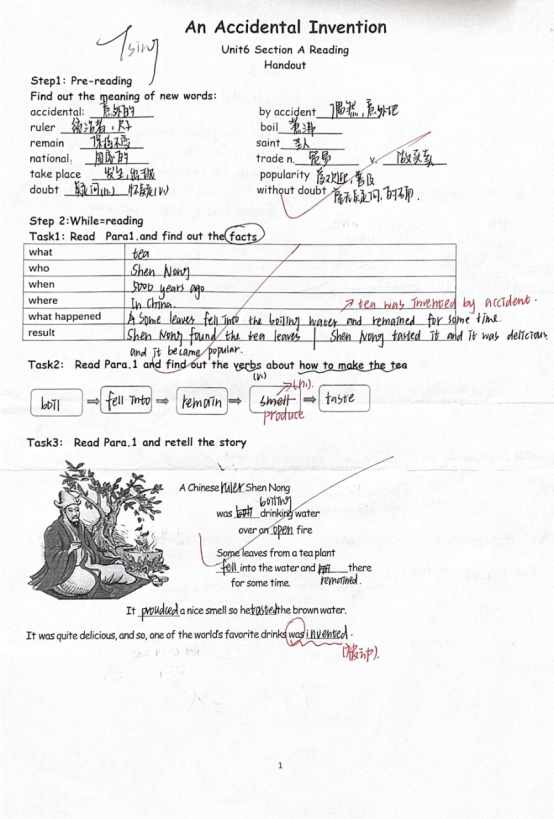 An Accidental Invention
Tsing
Unit6 Section A Reading
Handout
Step1: Pre-reading
Find out the meaning of new words:
accidental: 意外的 by accident 偶然,意外地
ruler 统治者,尺子 boil 煮沸
remain 保持不变 saint 圣人
national, 国家的 trade n. 贸易 v. 做买卖
take place 发生,出现 popularity 受欢迎,普及
doubt 疑问(n.) 怀疑(v) without doubt 毫无疑问,的确.
Step 2:While=reading
Task1: Read Para1.and find out the facts
what tea
who Shen Nong
when 5000 years ago
where In China. → tea was invented by accident.
what happened Some leaves fell into the boiling water and remained for some time.
result Shen Nong found the tea leaves | Shen Nong tasted it and it was delicious
and it became popular.
Task2: Read Para.1 and find out the verbs about how to make the tea
(n)
boil ⇒ fell into ⇒ remain ⇒ smell ⇒ taste
produce
Task3: Read Para.1 and retell the story
A Chinese ruler Shen Nong
boiling
was boil drinking water
over an open fire
Some leaves from a tea plant
fell into the water and there
for some time. remained.
It proudced a nice smell so he tasted the brown water.
It was quite delicious, and so, one of the world's favorite drinks was invented.
(被动).
1